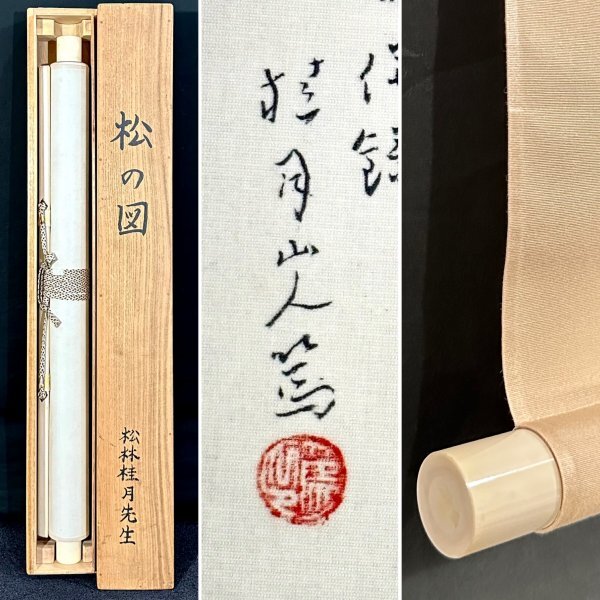 松の図
松林桂月先生
桂月山人篤